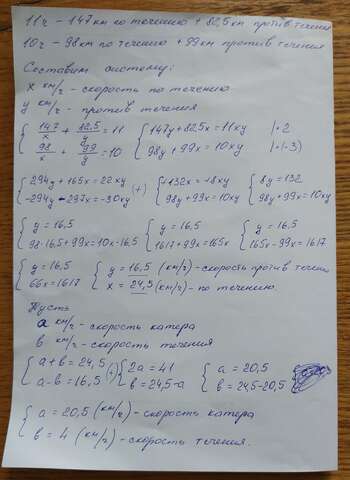 11ч - 147км по течению + 82,5км против течения
10ч - 98км по течению + 99км против течения
Составим систему:
x км/ч - скорость по течению
y км/ч - против течения
{ 147/x + 82,5/y = 11 { 147y + 82,5x = 11xy |·2
{ 98/x + 99/y = 10 { 98y + 99x = 10xy |·(-3)
{ 294y + 165x = 22xy (+) { +132x = +8xy { 8y = 132
{ -294y - 297x = -30xy { 98y + 99x = 10xy { 98y + 99x = 10xy
{ y = 16,5 { y = 16,5 { y = 16,5
{ 98·16,5 + 99x = 10x·16,5 { 1617 + 99x = 165x { 165x - 99x = 1617
{ y = 16,5 { y = 16,5 (км/ч) - скорость против течения
{ 66x = 1617 { x = 24,5 (км/ч) - по течению.
Пусть
a км/ч - скорость катера
в км/ч - скорость течения
{ a + в = 24,5 (+) { 2a = 41 { a = 20,5
{ a - в = 16,5 { в = 24,5 - a { в = 24,5 - 20,5
{ a = 20,5 (км/ч) - скорость катера
{ в = 4 (км/ч) - скорость течения.